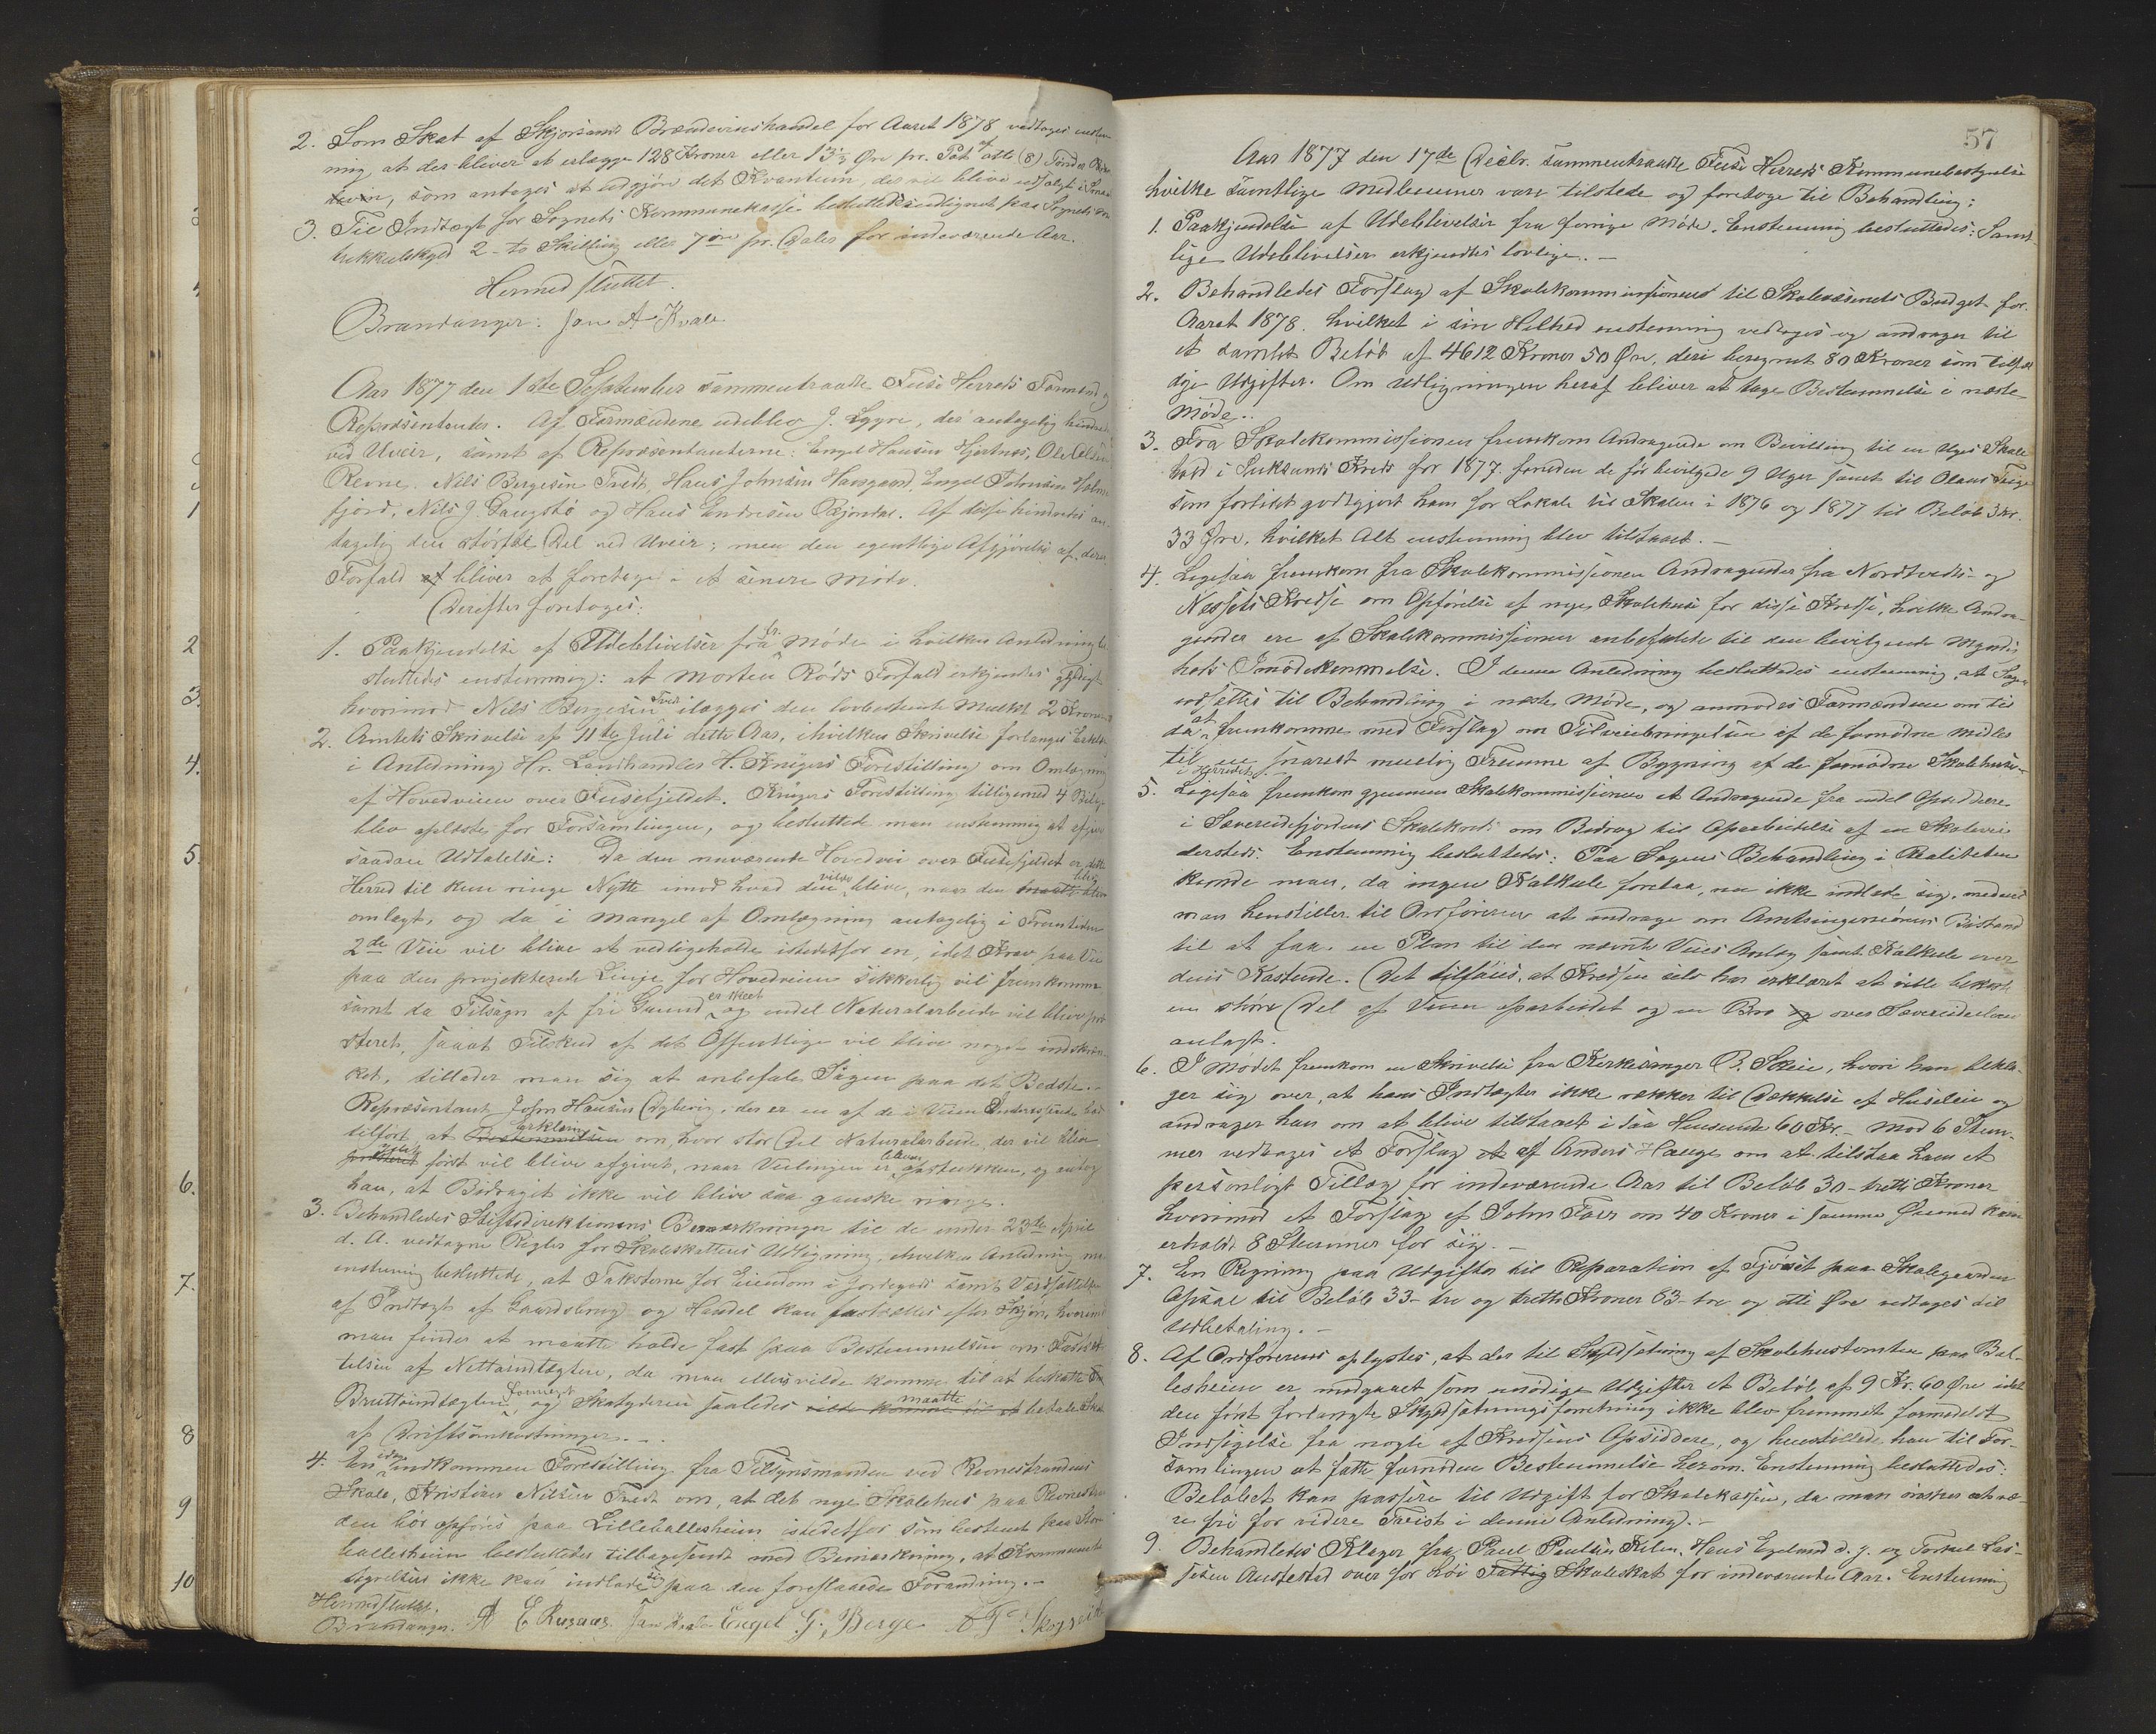 2. Som Skat af Skjorsand Brændevinshandel for Aaret 1878 vedtages enstem
ning, at der bliver at erlægge 128 Kroner eller 13⅓ Øre pr. Pot af otte (8) Tønder
som antages at udgjøre det Kvantum, der vil blive udsolgt i
3. Til Indtægt for Sognets Kommunekasse besluttedes udlignet paa Sognets
trikkulskyld 2 - to Skilling eller 7 øre pr. Daler for indeværende Aar.
Hermed sluttet.
Brandanger: Jan A Kvale
Aar 1877 den 1ste September sammentraadte Fuse Herreds Formænd og
Repræsentanter. Af Formændene udeblev J. Lygre, der antagelig hindredes
ved Uveir, samt af Repræsentanterne: Engel Hansen Hjertnes, Ole
Revne, Nils Børgesen Tvedt, Hans Johnsen Havsgaard, Engel Johnsen Holme
fjord, Nils J Gangstø og Hans Endresen Bjordal. Af disse hindredes an
tagelig den største Del ved Uveir; men den egentlige Afgjørelse af deres
Forfald af bliver at foretage i et senere Møde.
Derefter foretoges:
1. Paakjendelse af Udeblivelser fra fr. Møde i hvilken Anledning be
sluttedes enstemmig: at Morten Røds Forfald erkjendes gyldigt
hvorimod Nils Børgesen Tvedt ilægges den lovbestemte Mulkt 2 Kroner
2. Amtets Skrivelse af 11te Juli dette Aar, i hvilken Skrivelse forlanges Erklær
i Anledning Hr. Landhandler H. Krügers Forestilling om Omlægning
af Hovedveien over Fusefjeldet. Krügers Forestilling tilligemed 4 Bilage
blev oplæste for Forsamlingen, og besluttede man enstemmig at afgive
saadan Udtalelse: Da den nuværende Hovedvei over Fusefjeldet er dette
Herred til kun ringe Nytte imod hvad den vilde blive, naar den maatte blive
omlagt, og da i Mangel af Omlægning antagelig i Fremtiden
2de Veie vil blive at vedligeholde istedetfor en, idet Krav paa Vei
paa den projekterede Linje for Hovedveien sikkerlig vil fremkomme
samt da Tilsagn af fri Grund er skeet og endel Naturalarbeide vil blive præ
steret, saaat Tilskud af det Offentlige vil blive noget indskræn
ket, tillader man sig at anbefale Sagen paa det Bedste.-
Repræsentant John Hansen Dybvig, der er en af de i Veien Interesserede har
tilført, at Bestemmelsen Erklæring om hvor stor Del Naturalarbeide, der vil blive
præsteret først vil blive afgivet, naar Veilengen er bleven opstukken, og antog
han, at Bidraget ikke vil blive saa ganske ringe.
3. Behandledes Stiftsdirektionens Bemærkninger til de under 23de April
d. A. vedtagne Regler for Skoleskattens Udligning, i hvilken Anledning man
enstemmig besluttede, at Taksterne for Eiendom i Jordegods samt Værdsættelsen
af Indtægt af Gaardsbrug og Handel kan fastsættes efter Skjøn, hvorimod
man finder at maatte holde fast paa Bestemmelsen om Fastsæt
telsen af Nettoindtægten, da man ellers vilde komme til at beskatte
Bruttoindtægten, og Skatyderen saaledes vilde komme til at maatte betale Skat
af Driftsomkostninger.-
4. En indkommen Forestilling fra Tilsynsmanden ved Revnestrandens
Skole, Kristian Nilsen Tvedt om, at det nye Skolehus paa Revnestran
den bør opføres paa Lilleballesheim istedetfor som bestemt paa Stor
ballesheim besluttedes tilbagesendt med Bemærkning, at Kommunebe
styrelsen ikke kan indlade sig paa den foreslaaede Forandring.-
Hermed sluttet.
Brandanger. A E Rusaas. Jan Kvale Engel G. Berge
57
Aar 1877 den 17de Decbr. sammentraadte Fuse Herreds Kommunebestyrelse
hvilke samtlige Medlemmer vare tilstede og foretoge til Behandling:
1. Paakjendelse af Udeblivelser fra forrige Møde. Enstemmig besluttedes: Samt-
lige Udeblivelser erkjendtes lovlige.-
2. Behandledes Forslag af Skolekommissionens til Skolevæsenets Budget for
Aaret 1878. hvilket i sin Helhed enstemmig vedtoges og andrager til
et samlet Beløb af 4612 Kroner 50 Øre, deri beregnet 80 Kroner som tilfæl
dige Udgifter. Om Udligningen heraf bliver at tage Bestemmelse i næste
Møde.-
3. Fra Skolekommissionen fremkom Andragende om Bevilling til en Uges Skole
hold i Suksunds Kreds for 1877, foruden de før bevilgede 9 Uger samt til Olaus
som forlidt godtgjort ham for Lokale til Skolen i 1876 og 1877 til Beløb 3 Kr.
33 Øre, hvilket Alt enstemmig blev tilstaaet.-
4. Ligesaa fremkom fra Skolekommissionen Andragender fra Nordtvedts- og
Næssets Kredse om Opførelse af nye Skolehuse for disse Kredse, hvilke Andra-
gender ere af Skolekommissionen anbefalede til den bevilgende Myndig
heds Imødekommelse. I denne Anledning besluttedes enstemmig, at Sagen
udsættes til Behandling i næste Møde, og anmodes Formændene om til
da at fremkomme med Forslag om Tilveiebringelsen af de fornødne Midler
til en snarest muelig Fremme af Bygning af de fornødne Skolehuse
i Herredet.-
5. Ligesaa fremkom gjennem Skolekommissionen et Andragende fra endel Opsiddere
i Sævereidefjordens Skolekreds om Bidrag til Oparbeidelse af en Skolevei
dersteds. Enstemmig besluttedes: Paa Sagens Behandling i Realiteten
kunde man, da ingen Kalkule forelaa, nu ikke indlade sig, medens
man henstiller til Ordføreren at andrage om Amtsingeniørens Bistand
til at faa en Plan til den nævnte Veies Anlæg samt Kalkule over
dens Kostende. Det tilføies, at Kredsen selv har erklæret at ville bekoste
en større Del af Veien oparbeidet og en Bro og over Sævereideelven
anlagt.
6. I Mødet fremkom en Skrivelse fra Kirkesanger B. Skeie, hvori han bekla-
ger sig over, at hans Indtægter ikke rækker til Dækkelse af Husleie og
andrager han om at blive tilstaaet i saa Henseende 60 Kr.- Mod 6 Stem-
mer vedtoges et Forslag af Anders Hauge om at tilstaa ham et
personligt Tillæg for indeværende Aar til Beløb 30 - tretti Kroner
hvorimod et Forslag af John Foer om 40 Kroner i samme Øiemed kun
erholdt 8 Stemmer for sig.-
7. En Regning paa Udgifter til Reparation af Fjøset paa Skolegaarden
Opsal til Beløb 33 - tre og tretti Kroner 63 - tre og otti Øre vedtages til
Udbetaling.-
8. Af Ordføreren oplystes, at der til Skyldsætning af Skolehustomten paa Bal-
lesheim er medgaaet som unødige Udgifter et Beløb af 9 Kr. 60 Øre idet
den først forlangte Skyldsætningsforretning ikke blev fremmet formedelst
Indsigelse fra nogle af Kredsens Opsiddere, og henstillede han til For-
samlingen at fatte fornøden Bestemmelse herom. Enstemmig besluttedes:
Beløbet kan passere til Udgift for Skolekassen, da man ønsker at væ-
re fri for videre Tvist i denne Anledning.-
9. Behandledes Klager fra Poul Poulsen Helen, Hans Egeland d. y. og Torkel Las-
sesen Austestad over for høi Fattig Skoleskat for indeværende Aar. Enstemmig